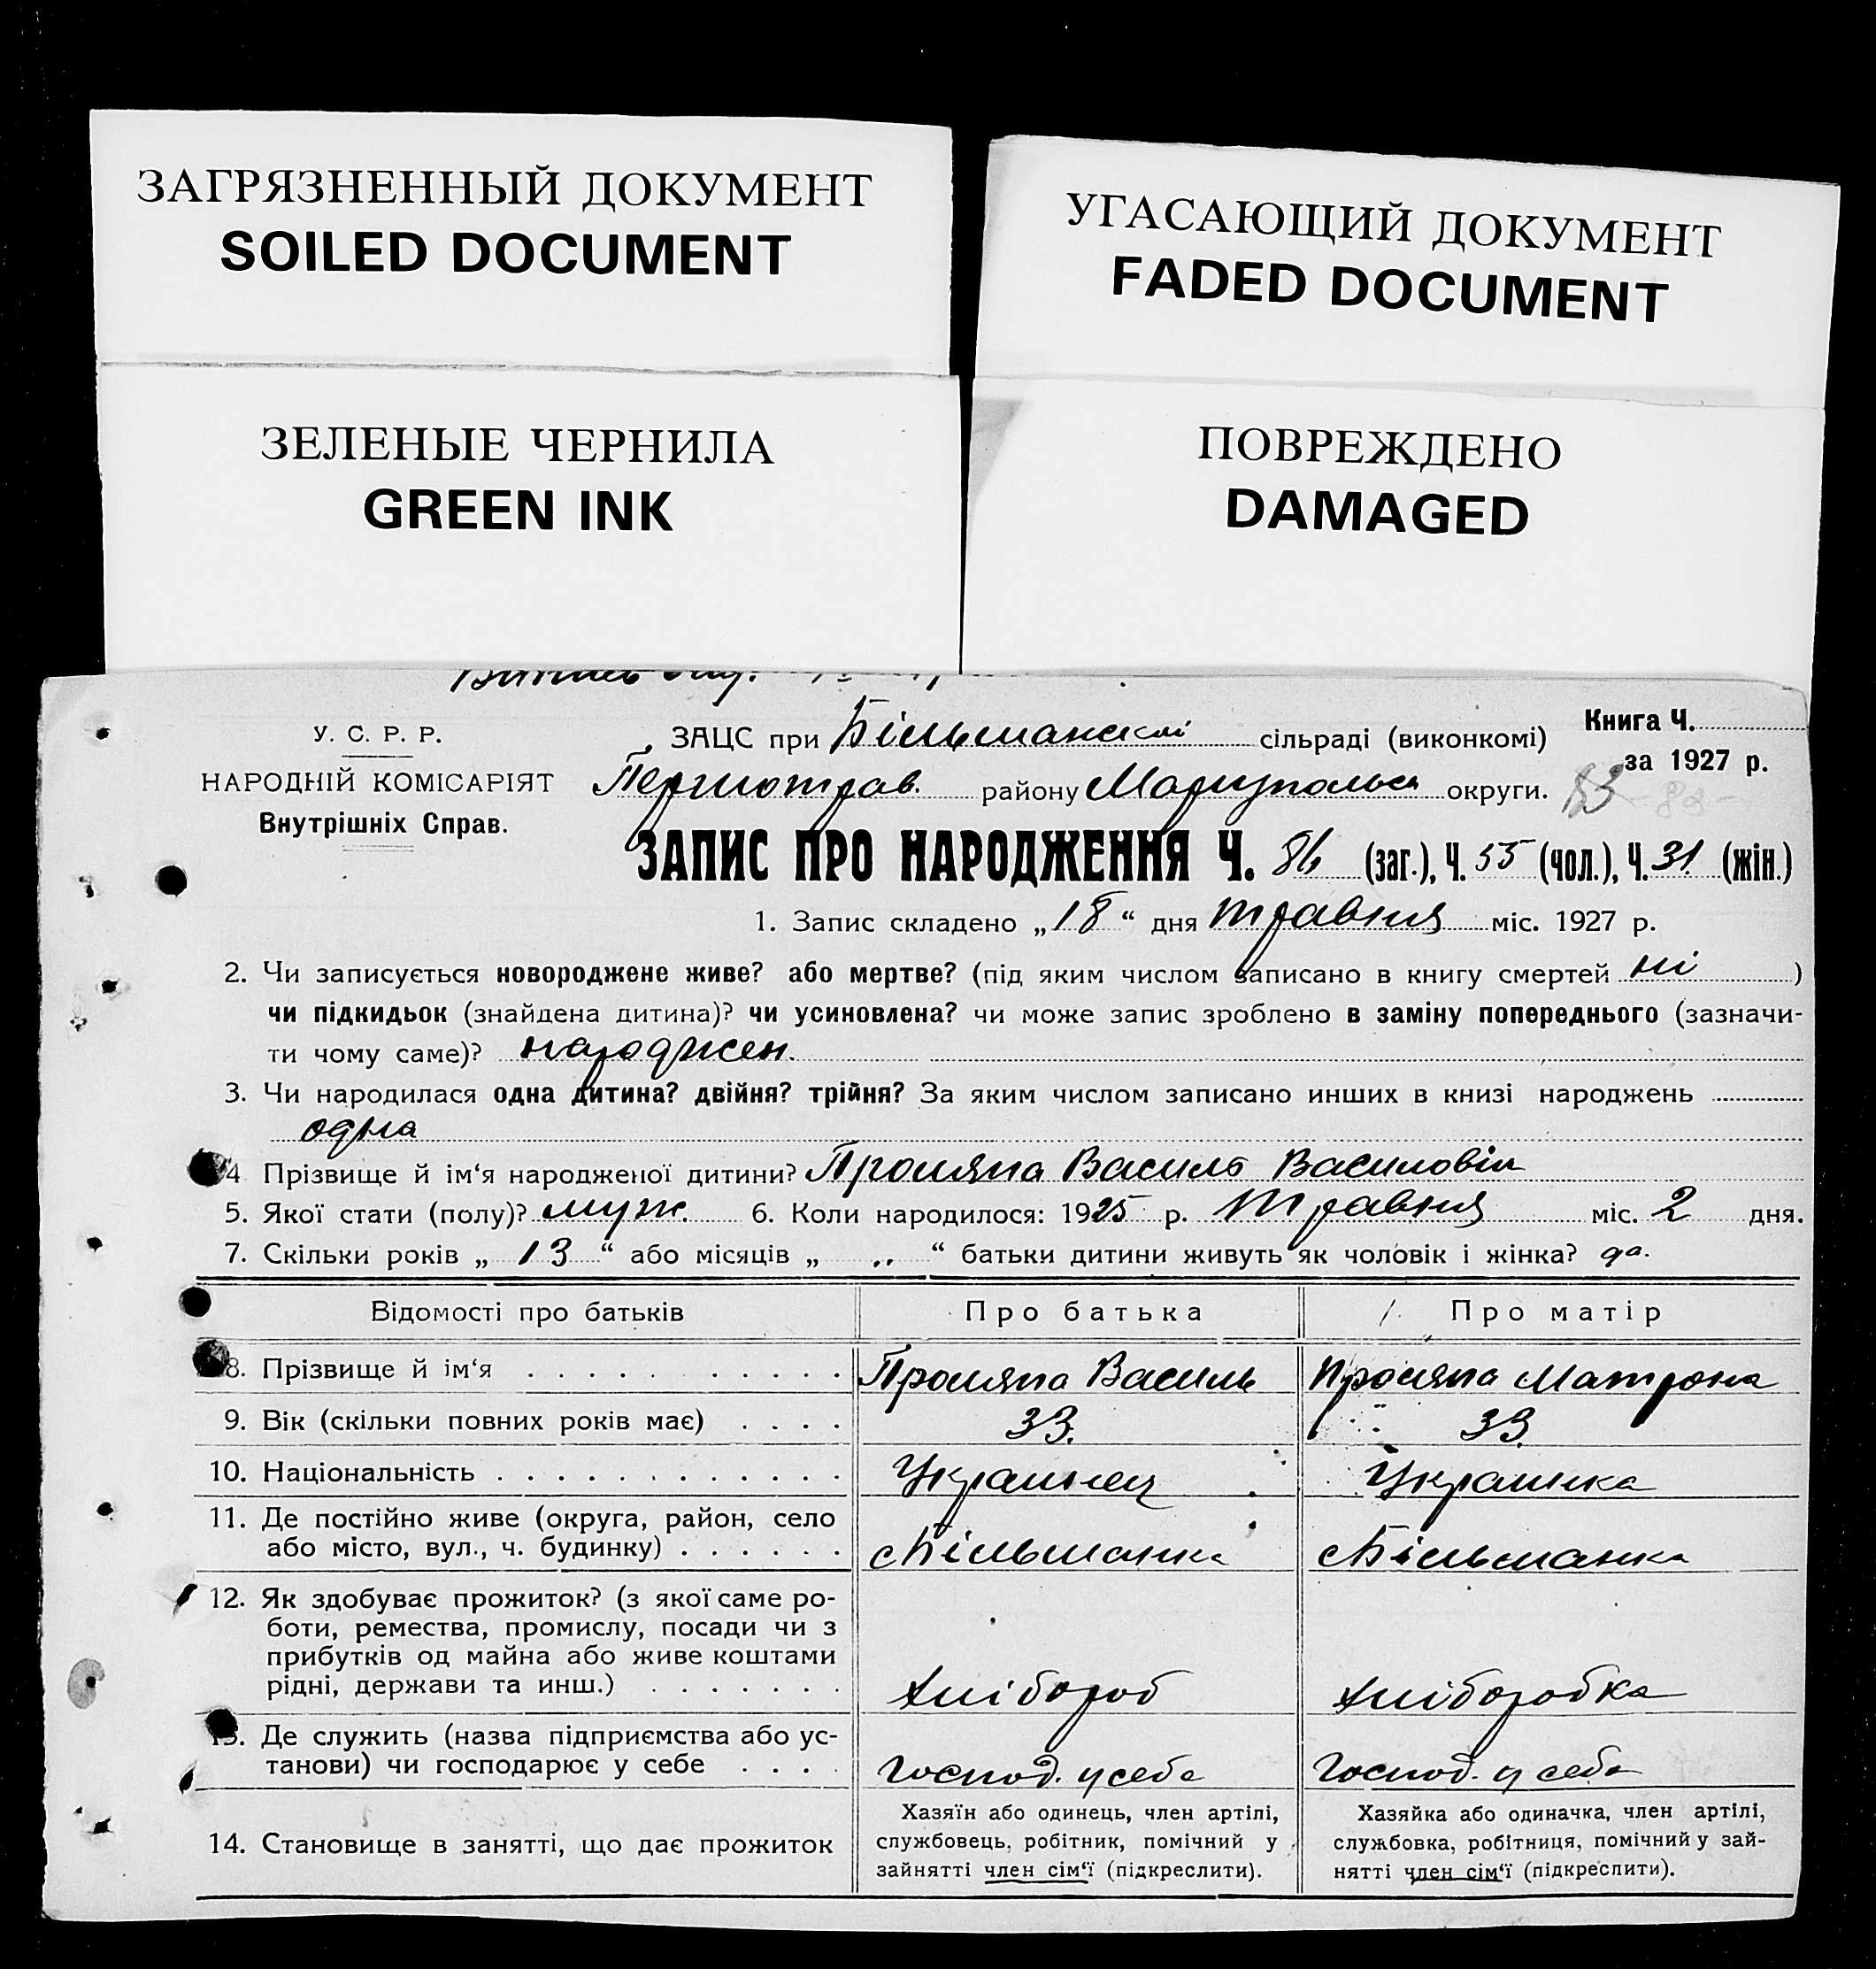 ЗАГРЯЗНЕННЫЙ ДОКУМЕНТ
SOILED DOCUMENT
УГАСАЮЩИЙ ДОКУМЕНТ
FADED DOCUMENT
ЗЕЛЕНЫЕ ЧЕРНИЛА
GREEN INK
ПОВРЕЖДЕНО
DAMAGED
У. С. Р. Р.
НАРОДНІЙ КОМІСАРІЯТ
Внутрішніх Справ.
Книга Ч.
за 1927 р.
ЗАЦС при Більманскій сільраді (виконкомі)
Першотрав. району Маріупольск округи. 83
ЗАПИС ПРО НАРОДЖЕННЯ Ч. 86 (заг.), Ч. 55 (чол.), Ч. 31. (жін.)
1. Запис складено „18“ дня травня міс. 1927 р.
2. Чи записується новороджене живе? або мертве? (під яким числом записано в книгу смертей ні )
чи підкидьок (знайдена дитина)? чи усиновлена? чи може запис зроблено в заміну попереднього (зазначи-
ти чому саме)? народжен.
3. Чи народилася одна дитина? двійня? трійня? За яким числом записано инших в книзі народжень
одна
4 Прізвище й ім‘я народженої дитини? Василь Василовіч
5. Якої стати (полу)? муж. 6. Коли народилося: 1925 р. Травня міс. 2 дня.
7. Скільки років „ 13 “ або місяців „ .. “ батьки дитини живуть як чоловік і жінка? да.
Відомості про батьків Про батька Про матір
8. Прізвище й ім‘я Василь Матрона
9. Вік (скільки повних років має) 33. 33.
10. Національність Украінец Украінка
11. Де постійно живе (округа, район, село
або місто, вул., ч. будинку) сБільманка сБільманка
12. Як здобуває прожиток? (з якої саме ро-
боти, ремества, промислу, посади чи з
прибутків од майна або живе коштами
рідні, держави та инш.) хлібороб хліборобка
13. Де служить (назва підприємства або ус-
танови) чи господарює у себе господ. у себе господ. у себе
14. Становище в занятті, що дає прожиток
Хазяїн або одинець, член артілі,
службовець, робітник, помічний у
зайнятті член сім‘ї (підкреслити).
Хазяйка або одиначка, член артілі,
службовка, робітниця, помічний у зай-
нятті член сім‘ї (підкреслити).